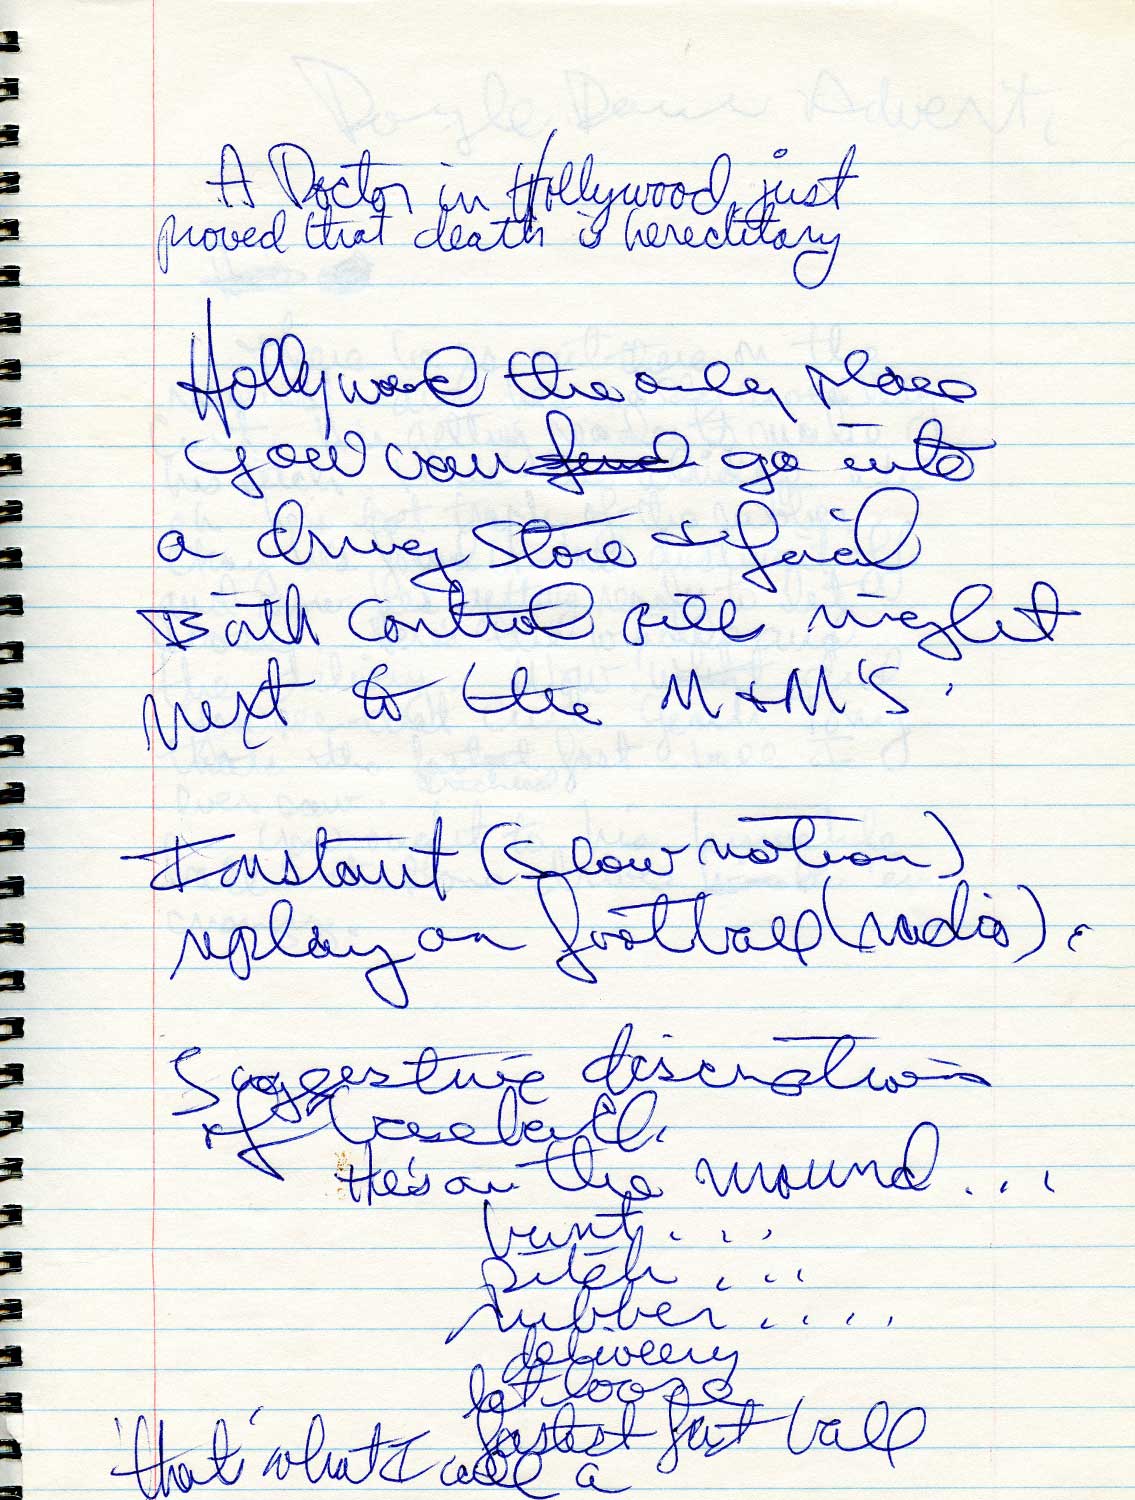 A Doctor in Hollywood just
proved that death is hereditary
Hollywood the only place
you can find go into
a drug store & find
Birth Control pill right
next to the M & M'S.
Instant (slow motion)
replay on football (radio).
Suggestive discriptions
of baseball.
He's on the mound...
bunt....
pitch...
rubber....
delivery
let loose
fastest fast ball
'that' what I call a